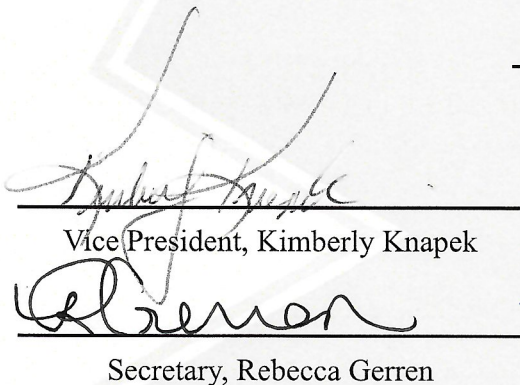 Kimberly Knapek
Vice President, Kimberly Knapek
RGerren
Secretary, Rebecca Gerren